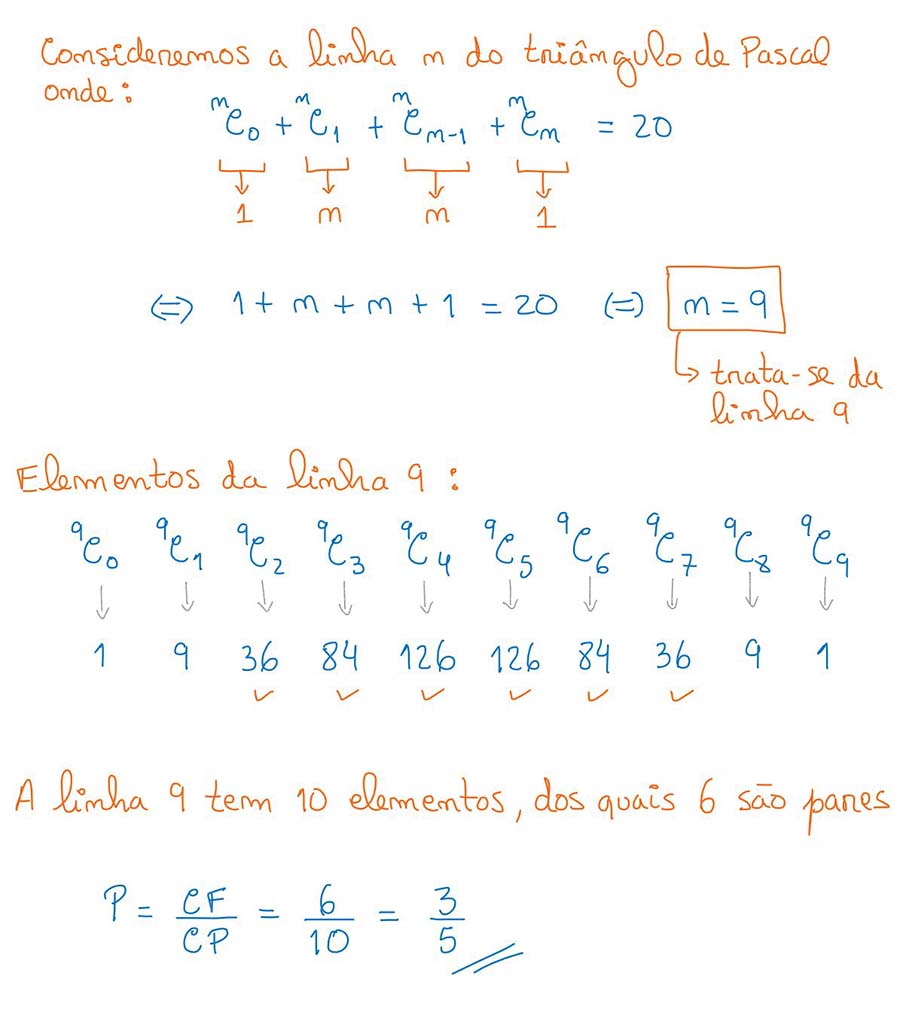 Consideremos a linha n do triângulo de Pascal
onde:
ⁿC₀ + ⁿC₁ + ⁿCₙ₋₁ + ⁿCₙ = 20
↓ ↓ ↓ ↓
1 n n 1
⇔ 1 + n + n + 1 = 20 ⇔ n = 9
↳ trata-se da
linha 9
Elementos da linha 9:
⁹C₀ ⁹C₁ ⁹C₂ ⁹C₃ ⁹C₄ ⁹C₅ ⁹C₆ ⁹C₇ ⁹C₈ ⁹C₉
↓ ↓ ↓ ↓ ↓ ↓ ↓ ↓ ↓ ↓
1 9 36 84 126 126 84 36 9 1
✓ ✓ ✓ ✓ ✓ ✓
A linha 9 tem 10 elementos, dos quais 6 são pares
P = CF/CP = 6/10 = 3/5